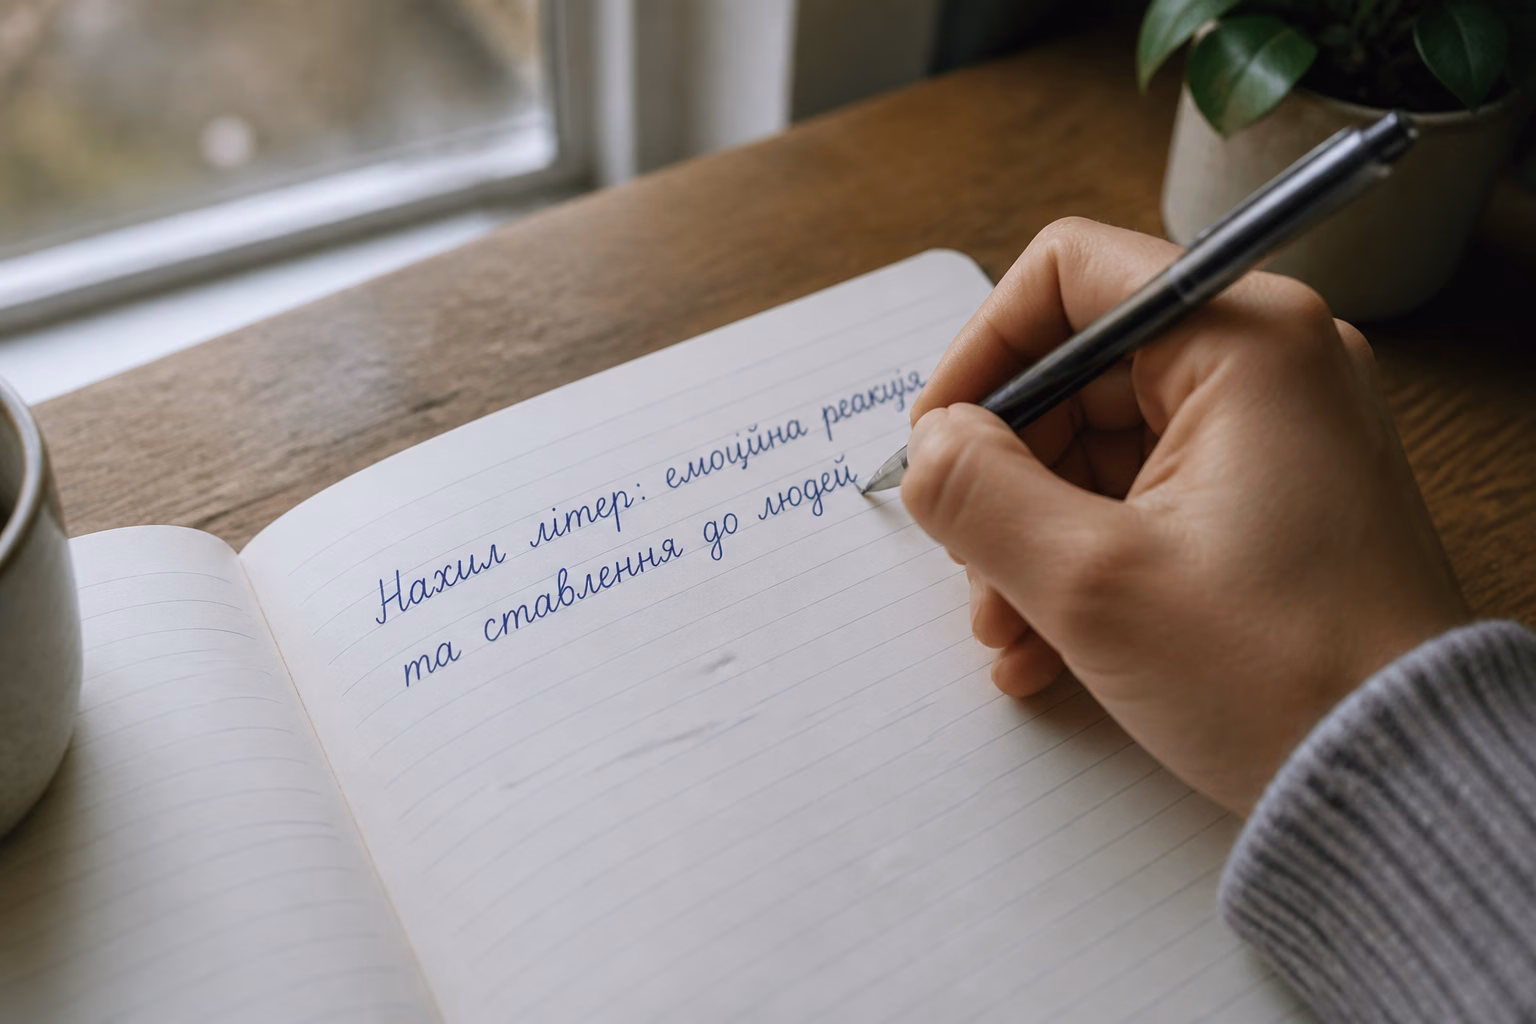 Нахил літер: емоційна реакція
та ставлення до людей